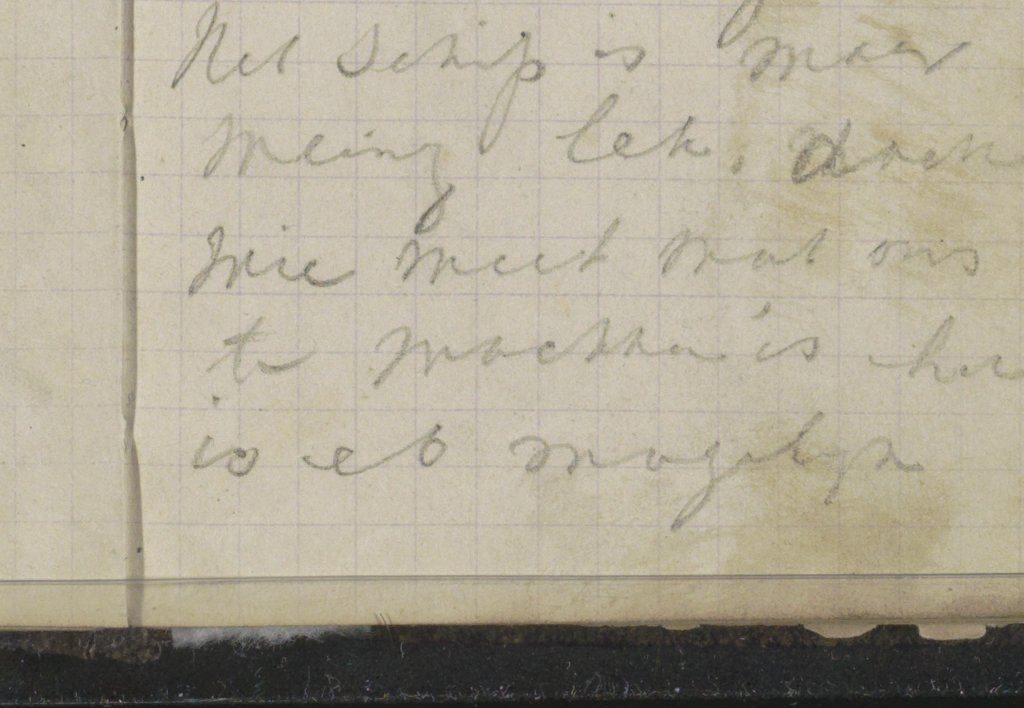 Het Schip is maar
weinig lek, doch
wie weet wat ons
te wachten is het
is eb mogelyk